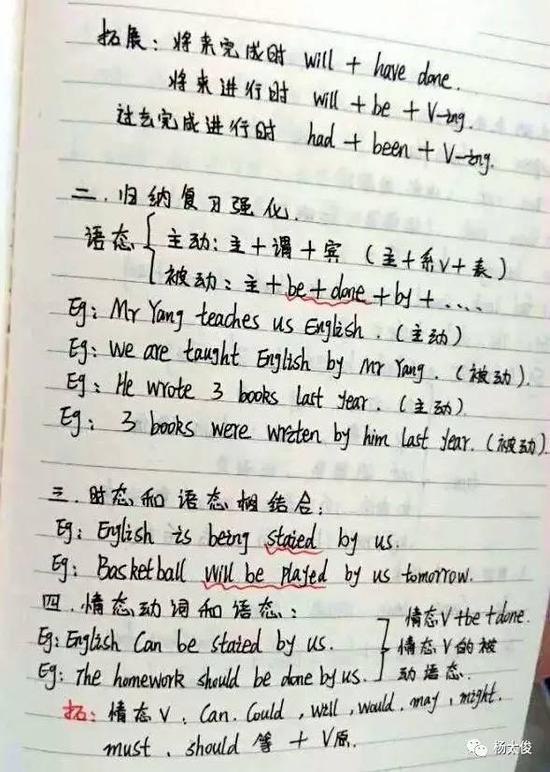 拓展：将来完成时 will + have done.
将来进行时 will + be + V-ing.
过去完成进行时 had + been + V-ing.
二. 归纳复习强化.
语态 { 主动：主+谓+宾 (主+系V+表)
被动：主+be+done+by+....
Eg: Mr Yang teaches us English. (主动)
Eg: We are taught English by Mr Yang. (被动)
Eg: He wrote 3 books last year. (主动)
Eg: 3 books were wrieten by him last year. (被动)
三. 时态和语态相结合：
Eg: English is being staied by us.
Eg: Basketball will be played by us tomorrow.
四. 情态动词和语态：
Eg: English Can be staied by us.
Eg: The homework should be done by us.
情态V+be+done.
情态V的被
动语态.
拓：情态V：Can. Could, will, would. may, might.
must、should 等 + V原.
杨太俊